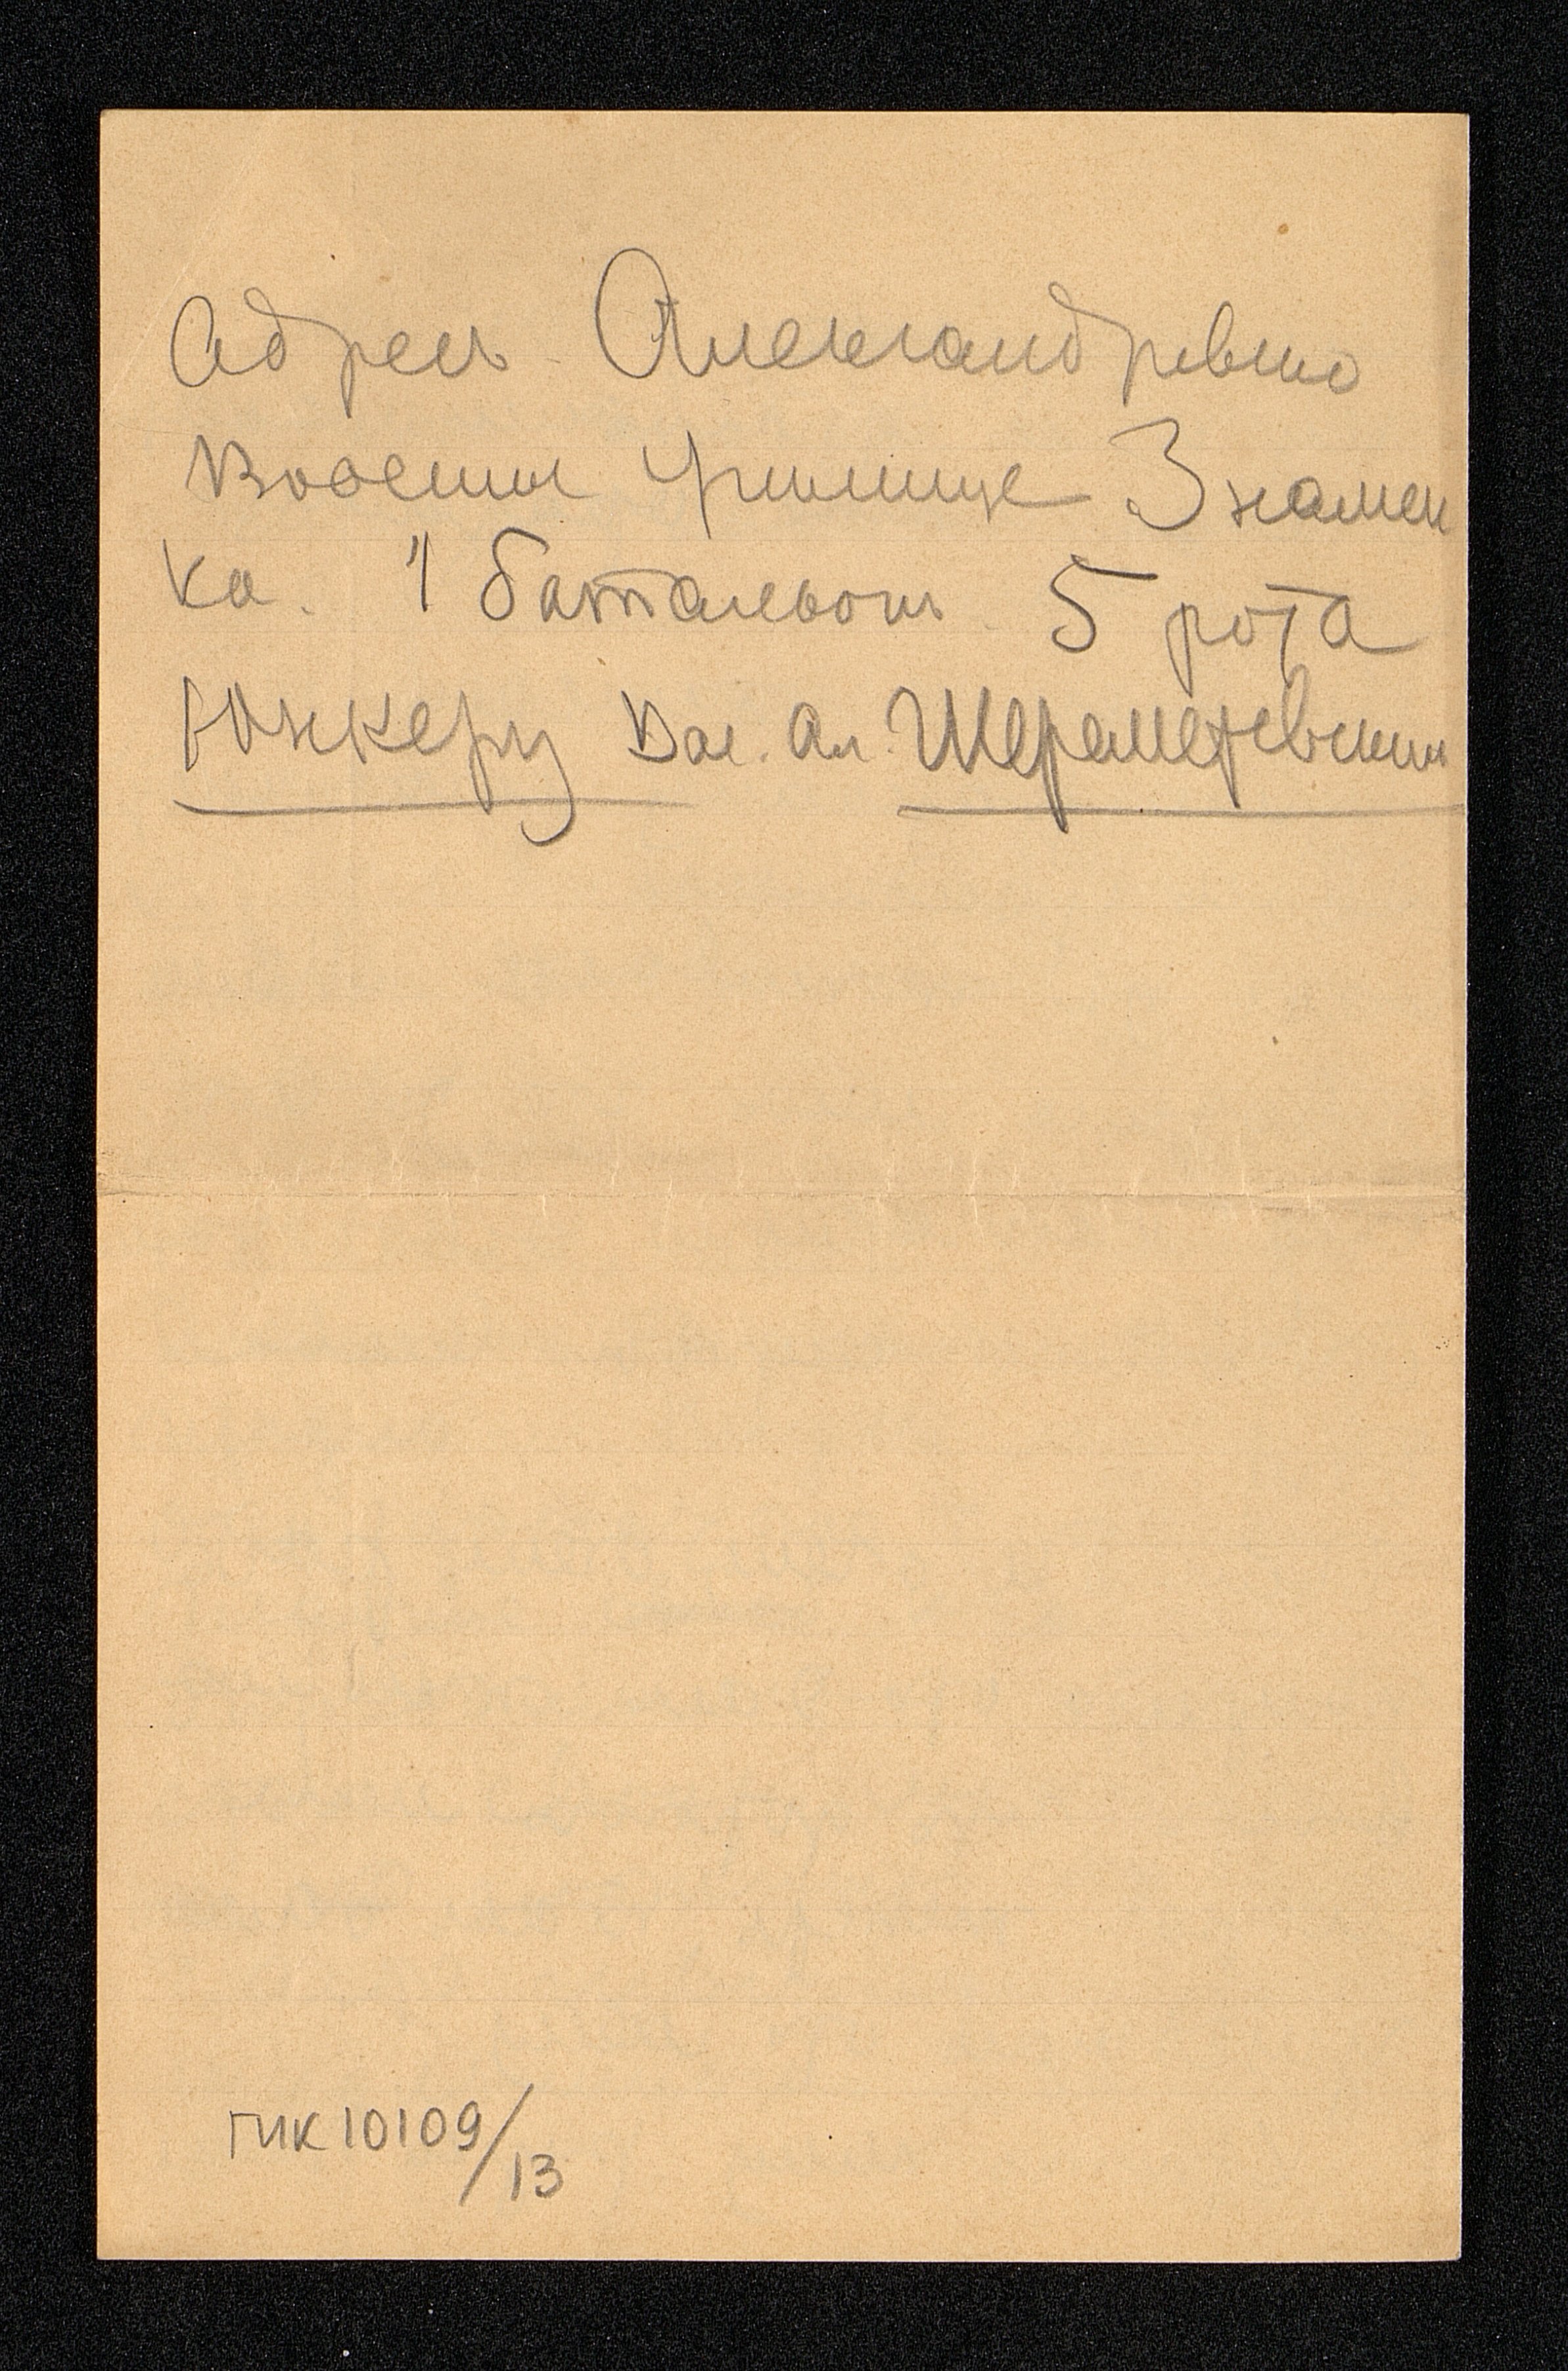 Адресъ Александревско
Военное Училище Знамен
ка. 1 баталъонъ 5 рота
Юнкеру Вас. Ал. Шереметевскому
ГИК 10109/13